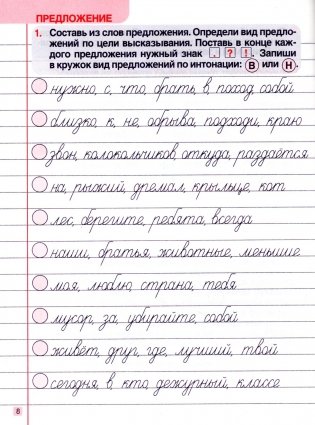 ПРЕДЛОЖЕНИЕ
1. Составь из слов предложения. Определи вид предло-
жений по цели высказывания. Поставь в конце каж-
дого предложения нужный знак . ? ! . Запиши
в кружок вид предложений по интонации: В или Н.
нужно, с, что, брать, в, поход, собой
близко, к, не, обрыва, подходи, краю
звон, колокольчиков, откуда, раздаётся
на, рыжий, дремал, крыльце, кот
лес, берегите, ребята, всегда
наши, братья, животные, меньшие
моя, люблю, страна, тебя
мусор, за, убирайте, собой
живёт, друг, где, лучший, твой
сегодня, в, кто, дежурный, классе
8